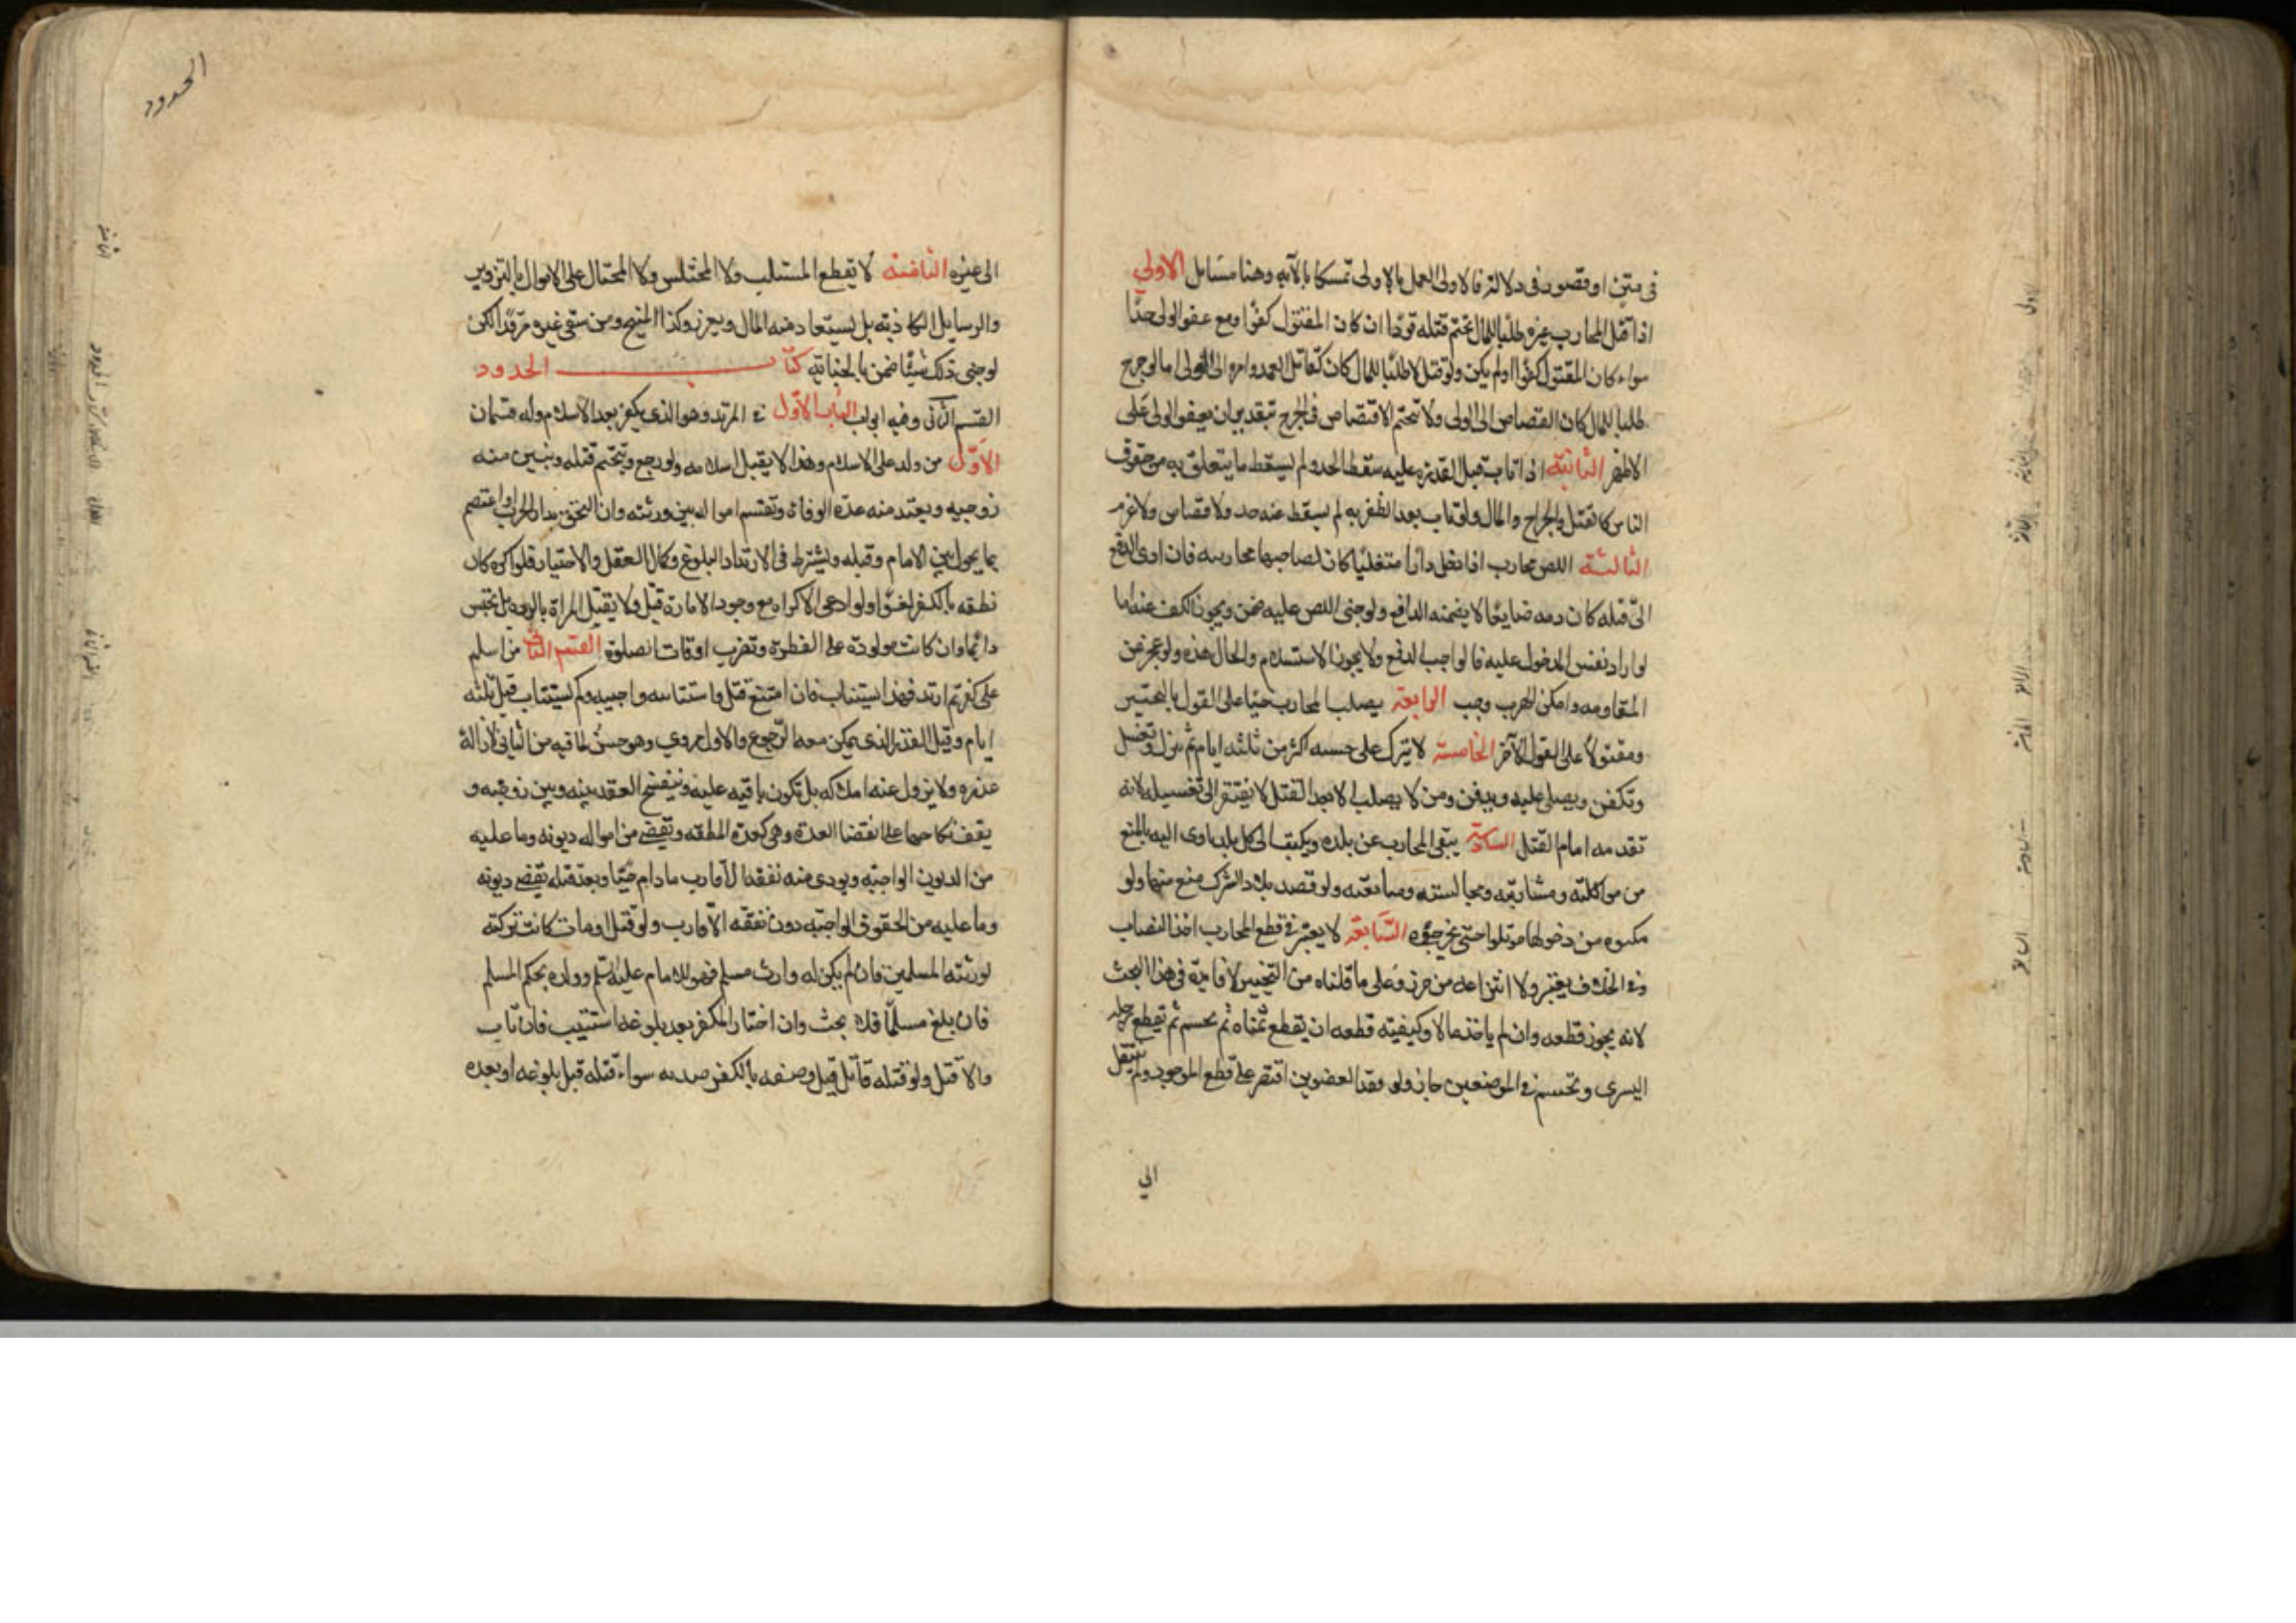 في متن او قصور في دلالة فالاولى العمل بالاولى تمسكا بالآية وهنا مسايل الاولى
اذا قتل المحارب غيره طلبا للمال تحتم قتله قودا ان كان المقتول كفوا ومع عفو الولي حدا
سواء كان المقتول كفوا اولم يكن ولو قتل لا طلبا للمال كان كقاتل العمد وامره الى الولي اما لو جرح
طلبا للمال كان القصاص الى الولي ولا تحتم الاقتصاص في الجرح بتقدير ان يعفو الولي على
الاظهر الثانية اذا تاب قبل القدرة عليه سقط الحد ولم يسقط ما يتعلق به من حقوق
الناس كالقتل والجراح والمال ولو تاب بعد الظفر به لم يسقط عنه حد ولا قصاص ولا غرم
الثالثة اللص محارب اذا دخل دارا متغلبا كان لصاحبها محاربته فان ادى الدفع
الى قتله كان دمه ضايعا لا يضمنه الدافع ولو جنى اللص عليه ضمن ويجوز الكف عنه اما
لو اراد نفس المدخول عليه فالواجب الدفع ولا يجوز الاستسلام والحال هذه ولو عجز عن
المقاومه وامكن الهرب وجب الرابعة يصلب المحارب حيا على القول بالتخيير
ومقتولا على القول الآخر الخامسة لا يترك على خشبه اكثر من ثلثه ايام ثم ينزل وتغسل
وتكفن ويصلى عليه ويدفن ومن لا يصلب الا بعد القتل لا يفتقر الى تغسيله لانه
تقدمه امام القتل السادسة ينفى المحارب عن بلده ويكتب الى كل بلد ياوى اليه بالمنع
من مواكلته ومشاربته ومجالسته ومبايعته ولو قصد بلاد الشرك منع منها ولو
مكنوه من دخولها قوتلوا حتى يخرجوه السابعة لا يعتبر في قطع المحارب اخذ النصاب
وفي الخلاف يعتبر ولا انتزاعه من حرز وعلى ما قلناه من التخيير لا فايدة في هذا البحث
لانه يجوز قطعه وان لم ياخذ مالا وكيفيته قطعه ان يقطع يمناه ثم تحسم ثم يقطع رجله
اليسرى وتحسم في الموضعين جاز ولو فقد العضوين اقتصر على قطع الموجود ولم ينتقل
الى
الحدود
الى غيره الثامنة لا يقطع المستلب ولا المختلس ولا المحتال على الاموال بالتزوير
والرسايل الكاذبة بل يستعاد منه المال ويعزر وكذا المبنج ومن سقى غيره مرقدا لكن
لو جنى ذلك شيئا ضمن بالجناية كتاب الحدود
القسم الثاني وفيه ابواب الباب الاول في المرتد وهو الذي يكفر بعد الاسلام وله قسمان
الاول من ولد على الاسلام وهذا لا يقبل اسلامه ولو رجع وتحتم قتله وتبين منه
زوجته ويعتد منه عدة الوفاة وتقسم امواله بين ورثته وان التحق بدار الحرب او اعتصم
بما يحول بين الامام وقتله ويشترط في الارتداد البلوغ وكمال العقل والاختيار فلو اكره كان
نطقه بالكفر لغوا ولو ادعى الاكراه مع وجود الامارة قبل ولا تقتل المراة بالرده بل تحبس
دايما وان كانت مولودة على الفطرة وتضرب اوقات الصلوة القسم الثاني من اسلم
على كفر ثم ارتد فهذا يستتاب فان امتنع قتل واستتابته واجبه وكم يستتاب قيل ثلثه
ايام وقيل القدر الذي يمكن معه الرجوع والاول مروي وهو حسن لما فيه من التاني لازالة
عذره ولا يزول عنه املاكه بل تكون باقيه عليه وينفسخ العقد بينه وبين زوجته و
يقف نكاحها على انقضا العدة وهي كعدة المطلقه وتقضى من امواله ديونه وما عليه
من الديون الواجبة ويودى منه نفقه الاقارب ما دام حيا وبعد قتله تقضى ديونه
وما عليه من الحقوق الواجبه دون نفقه الاقارب ولو قتل او مات كانت تركته
لورثته المسلمين فان لم يكن له وارث مسلم فهو للامام عليه السلم وولده بحكم المسلم
فان بلغ مسلما فلا بحث وان اختار الكفر بعد بلوغه استتيب فان تاب
والا قتل ولو قتله قاتل قبل وصفه بالكفر سواء قتله قبل بلوغه او بعده